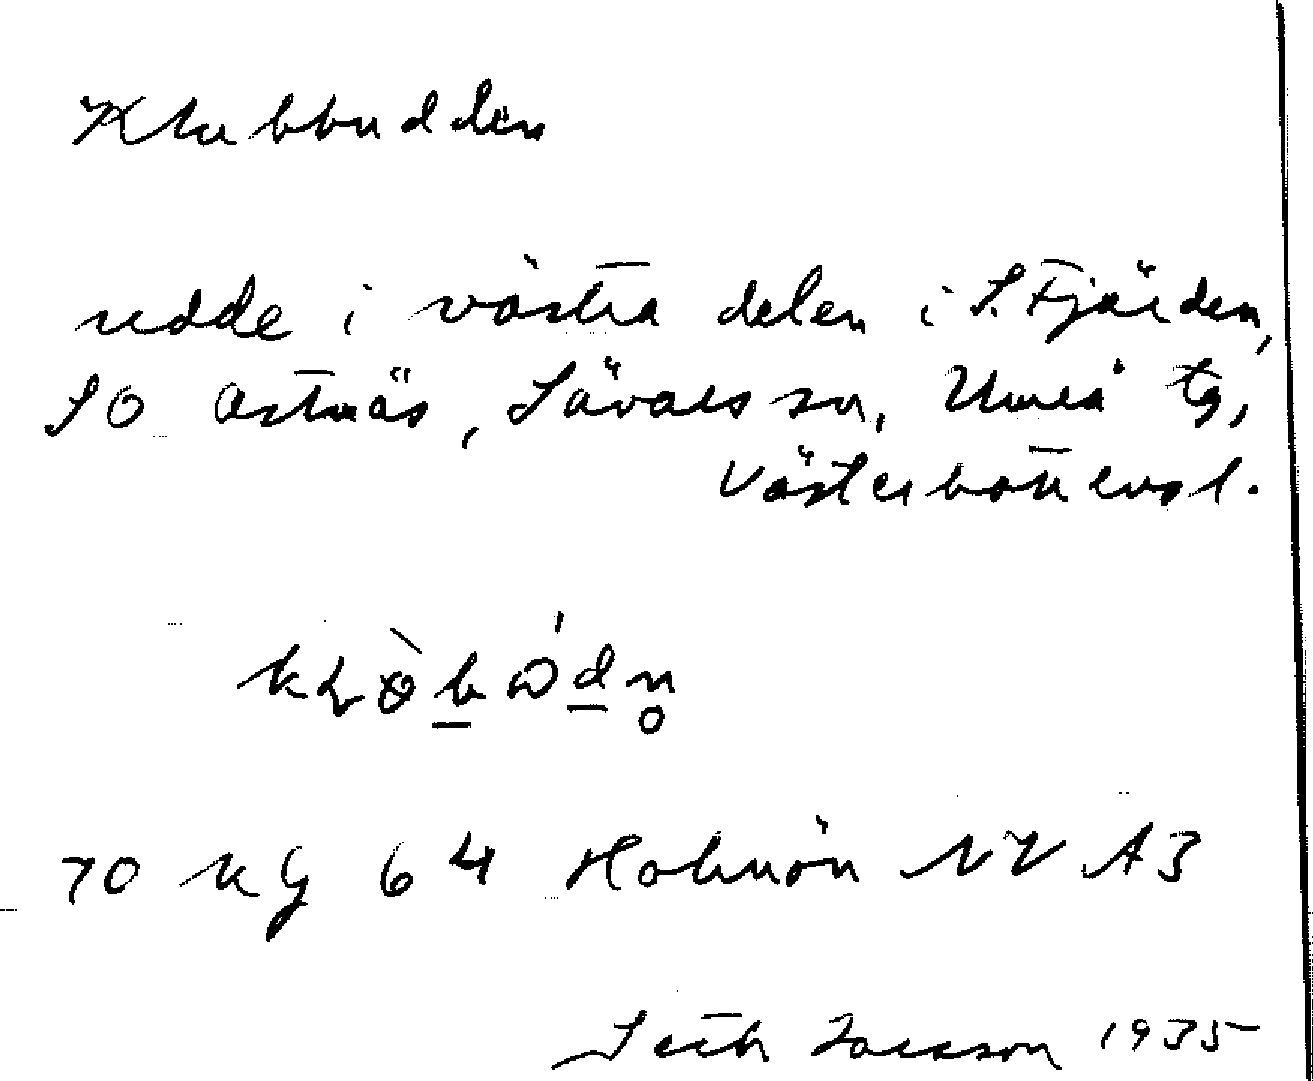 Klubbudden
udde i västra delen i S. Fjärden,
SO Ostnäs, Sävars sn, Umeå tg,
Västerbottens l.
70 KG 64 Holmön NV A3
Seth Larsson 1935